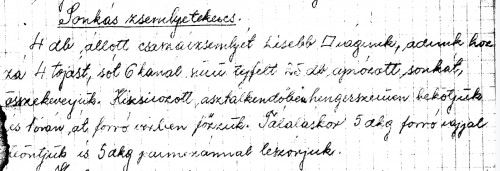 Sonkás zsemlyetekercs.
4 db állott császárzsemlyét kisebb □ vágunk, adunk hoz
zá 4 tojást, sót 6 kanál sűrű tejfelt 25 db aprózott sonkát,
összekeverjük. Kizsírozott, asztalkendőben hengerszerűen bekötjük
és 1 órán át forró vízben főzzük. Tálaláskor 5 dkg forró vajjal
leöntjük és 5 dkg parmezánnal leszórjuk.